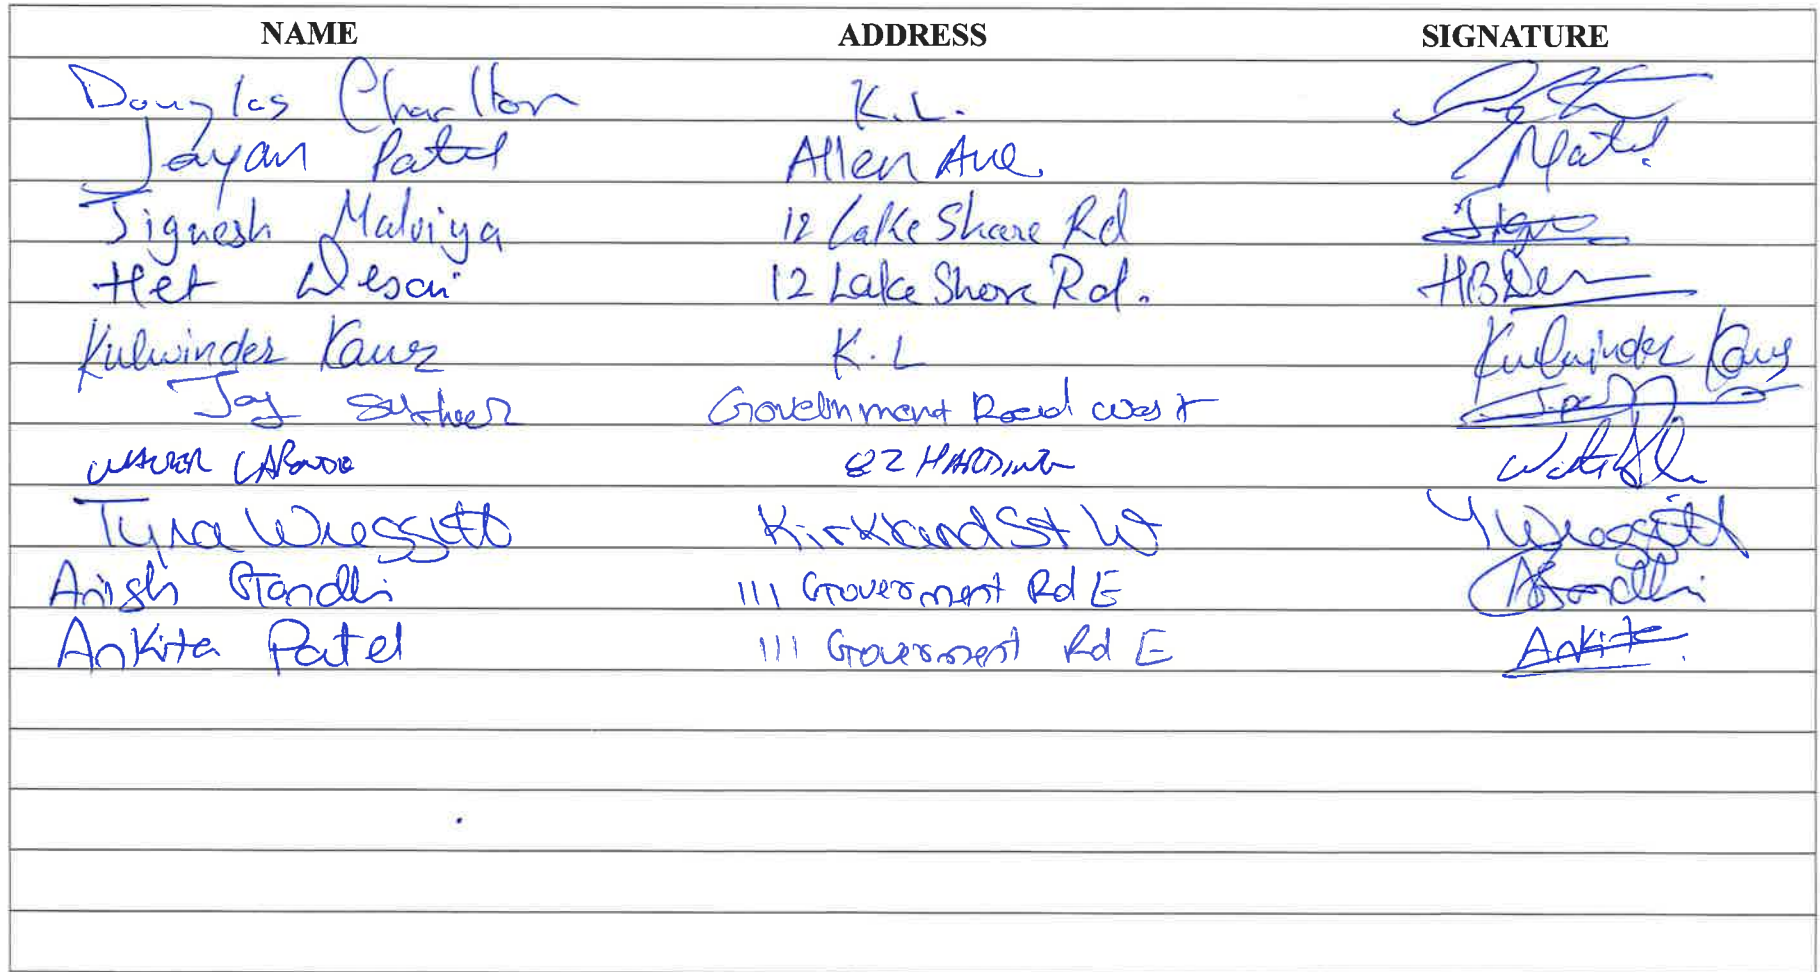 NAME ADDRESS SIGNATURE
Douglas Charlton K.L.
Jayan Patel Allen Ave. Patel
Jignesh Malviya 12 Lake Shore Rd Jign
Het Desai 12 Lake Shore Rd. HBDes
Kulwinder Kaur K.L Kulwinder Kaur
Jay Suther Government Road west
82 HARDING
Tyra Wreggitt Kirkland St W TWreggitt
Anish Gandhi 111 Government Rd E AGandhi
Ankita Patel 111 Government Rd E Ankita